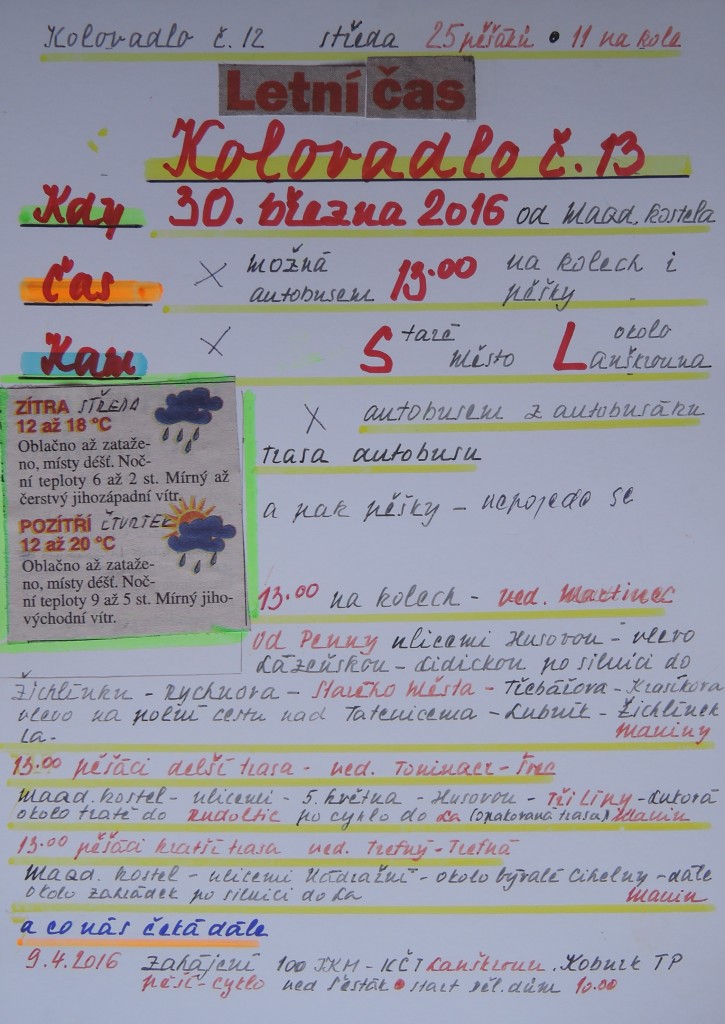 Kolovadlo č.12 středa 25 pěšáků • 11 na kole
Letní čas
Kolovadlo č.13
Kdy 30. března 2016 od Magd. kostela
Čas × možná autobusem 13.00 na kolech i pěšky
Kam × Staré Město okolo Lanškrouna
ZÍTRA STŘEDA
12 až 18 °C
Oblačno až zataže-
no, místy déšť. Noč-
ní teploty 6 až 2 st. Mírný až
čerstvý jihozápadní vítr.
POZÍTŘÍ ČTVRTEK
12 až 20 °C
Oblačno až zataže-
no, místy déšť. Noč-
ní teploty 9 až 5 st. Mírný jiho-
východní vítr.
× autobusem z autobusáku
trasa autobusu
a pak pěšky - nepojede se
13.00 na kolech - ved. Martinec
od Penny ulicemi Husovou - vlevo
Lázeňskou - Lidickou po silnici do
Žichlínku - Rychnova - Starého Města - Třebářova - Krasíkova
vlevo na polní cestu nad Tatenicema - Lubník - Žichlínek
La - Maniny
13.00 pěšáci delší trasa - ved.
Magd. kostel - ulicemi - 5. května - Husovou - Tři Lípy - Luková
okolo tratě do Rudoltic po cyklo do La (opakovaná trasa) Manin
13.00 pěšáci kratší trasa ved.
Magd. kostel - ulicemi Nádražní - okolo bývalé Cihelny - dále
okolo zahrádek po silnici do La Manin
a co nás čeká dále
9.4.2016 Zahájení 100 JKM - KČT Lanškroun.
pěší - cyklo ved Šesták • start děl. dům 10.00